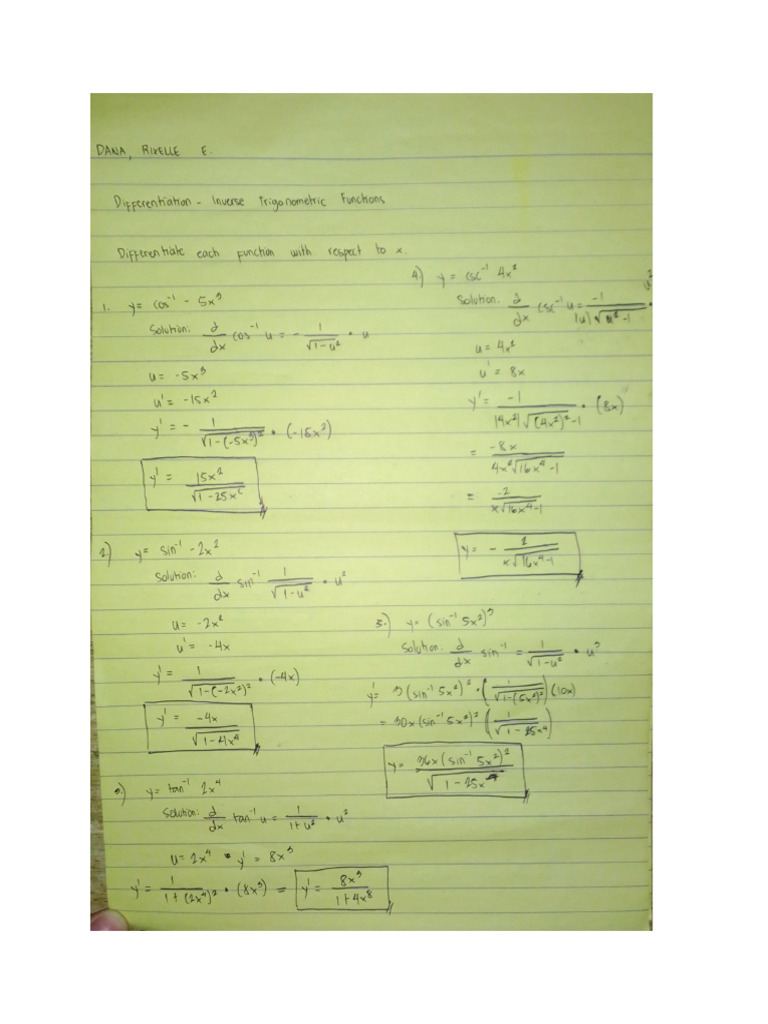 DANA, RIXELLE E.
Differentiation - Inverse Trigonometric Functions
Differentiate each function with respect to x.
1. y = cos⁻¹ - 5x³
Solution: d/dx cos⁻¹ u = - 1/√(1-u²) • u
u = -5x³
u' = -15x²
y' = - 1/√(1-(-5x³)²) • (-15x²)
y' = 15x²/√(1-25x⁶)
2.) y = sin⁻¹ - 2x²
Solution: d/dx sin⁻¹ 1/√(1-u²) • u²
u = -2x²
u' = -4x
y' = 1/√(1-(-2x²)²) • (-4x)
y' = -4x/√(1-4x⁴)
3.) y = tan⁻¹ 2x⁴
Solution: d/dx tan⁻¹ u = 1/(1+u²) • u²
u = 2x⁴ • y' = 8x³
y' = 1/(1+(2x⁴)²) • (8x³) = y' = 8x³/(1+4x⁸)
4.) y = csc⁻¹ 4x²
Solution: d/dx csc⁻¹ u = -1/(|u|√(u²-1)) • u²
u = 4x²
u' = 8x
y' = -1/(|4x²|√((4x²)²-1)) • (8x)
= -8x/(4x²√(16x⁴-1))
= -2/(x√(16x⁴-1))
y = - 2/(x√(16x⁴-1))
5.) y = (sin⁻¹ 5x²)³
Solution: d/dx sin⁻¹ = 1/√(1-u²) • u²
y' = 3(sin⁻¹ 5x²)² • (1/√(1-(5x²)²)) (10x)
= 30x(sin⁻¹ 5x²)² (1/√(1-25x⁴))
y = 36x(sin⁻¹ 5x²)²/√(1-25x⁴)